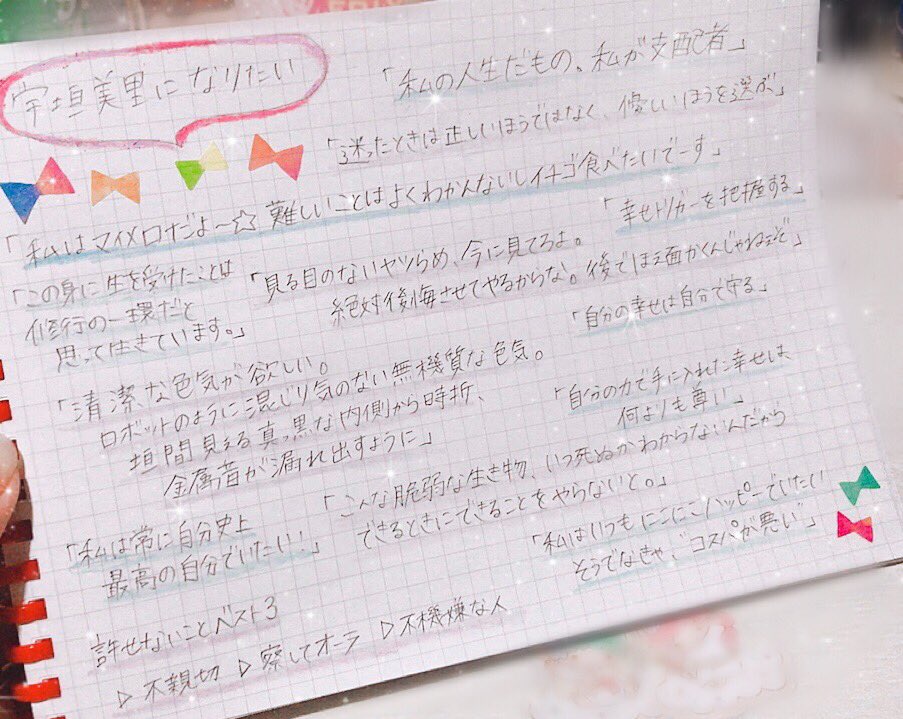 宇垣美里になりたい
「私の人生だもの、私が支配者」
「迷ったときは正しいほうではなく、優しいほうを選ぶ」
「私はマイメロだよ〜☆難しいことはよくわかんないしイチゴ食べたいでーす」
「幸せトリガーを把握する」
「この身に生を受けたことは
修行の一環だと
思って生きています。」
「見る目のないヤツらめ、今に見てろよ。
絶対後悔させてやるからな。後でほえ面かくんじゃねえぞ」
「自分の幸せは自分で守る」
「清潔な色気が欲しい。
ロボットのように混じり気のない無機質な色気。
垣間見える真っ黒な内側から時折、
金属音が漏れ出すように」
「自分の力で手に入れた幸せは、
何よりも尊い」
「こんな脆弱な生き物、いつ死ぬかわからないんだから
できるときにできることをやらないと。」
「私は常に自分史上
最高の自分でいたい!」
「私はいつもにこにこハッピーでいたい
そうでなきゃ、"コスパが悪い"」
許せないことベスト3
▷不親切 ▷察してオーラ ▷不機嫌な人